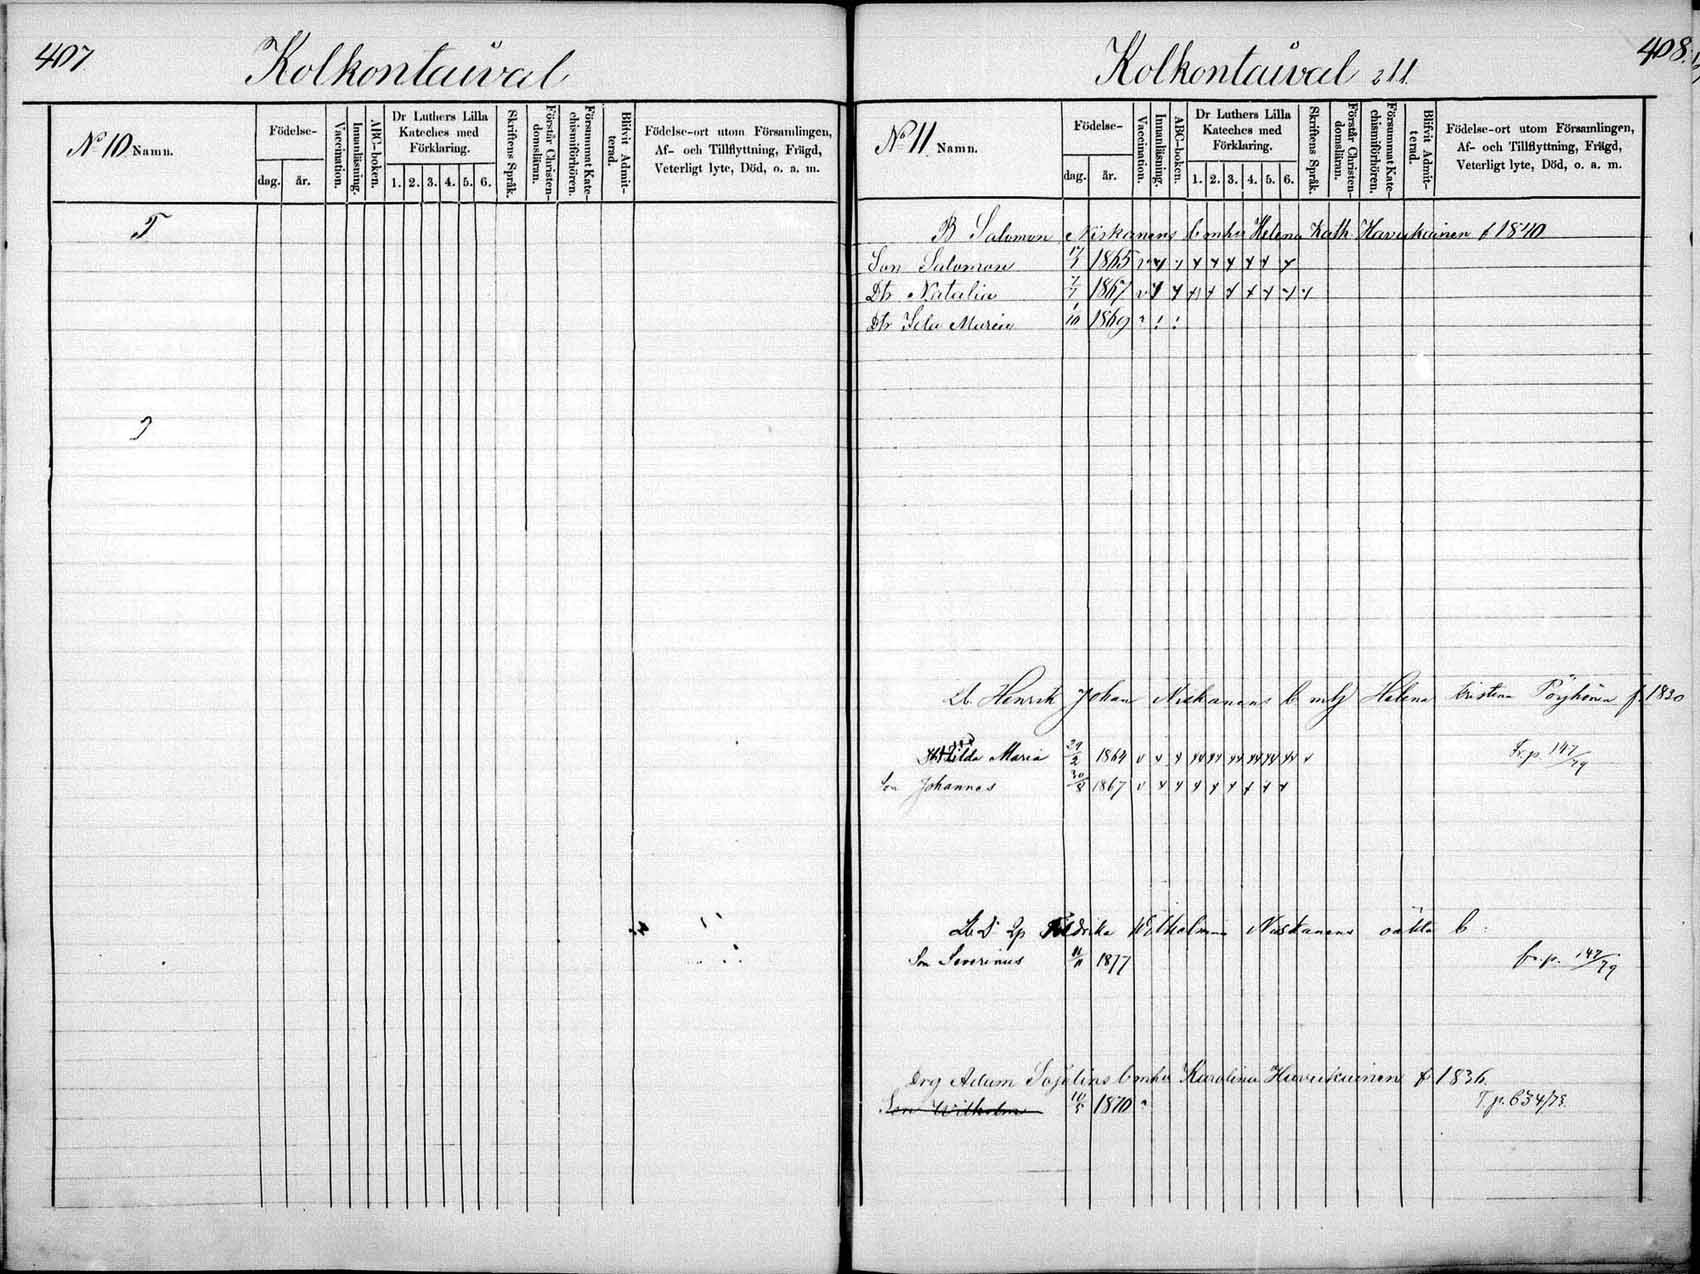 407
Kolkontaival
No 10 Namn.
Födelse-
dag.
år.
Vaccination.
Innanläsning.
ABC-boken.
Dr Luthers Lilla
Kateches med
Förklaring.
1. 2. 3. 4. 5. 6.
Skriftens Språk.
Förstår Christen-
domsläran.
Försummat Kate-
chismiförhören.
Blifvit Admit-
terad.
Födelse-ort utom Församlingen,
Af- och Tillflyttning, Frägd,
Veterligt lyte, Död, o. a. m.
Kolkontaival 211.
408.
No 11 Namn.
Födelse-
dag.
år.
Vaccination.
Innanläsning.
ABC-boken.
Dr Luthers Lilla
Kateches med
Förklaring.
1. 2. 3. 4. 5. 6.
Skriftens Språk.
Förstår Christen-
domsläran.
Försummat Kate-
chismiförhören.
Blifvit Admit-
terad.
Födelse-ort utom Församlingen,
Af- och Tillflyttning, Frägd,
Veterligt lyte, Död, o. a. m.
B Salomon Niskanens b mhu Helena Kath Havukainen f 1840
Son Salomon 1865
Dtr Natalia 1867
Dtr Ida Maria 1/10 1869
Henrik Johan Niskanens b m Helena Kristina Pöyhönen f. 1830
Hilda Maria 29/2 1864 Fr.p 147/79
Son Johannes 30/8 1867
Fredrika Wilhelmina Niskanens oäkta b
Son Severinus 11/11 1877 fr.p. 147/79
Drg Adam b mhu Karolina Havukainen f 1836.
Son Wilhelm 10/5 1870 T.p. 634/73.